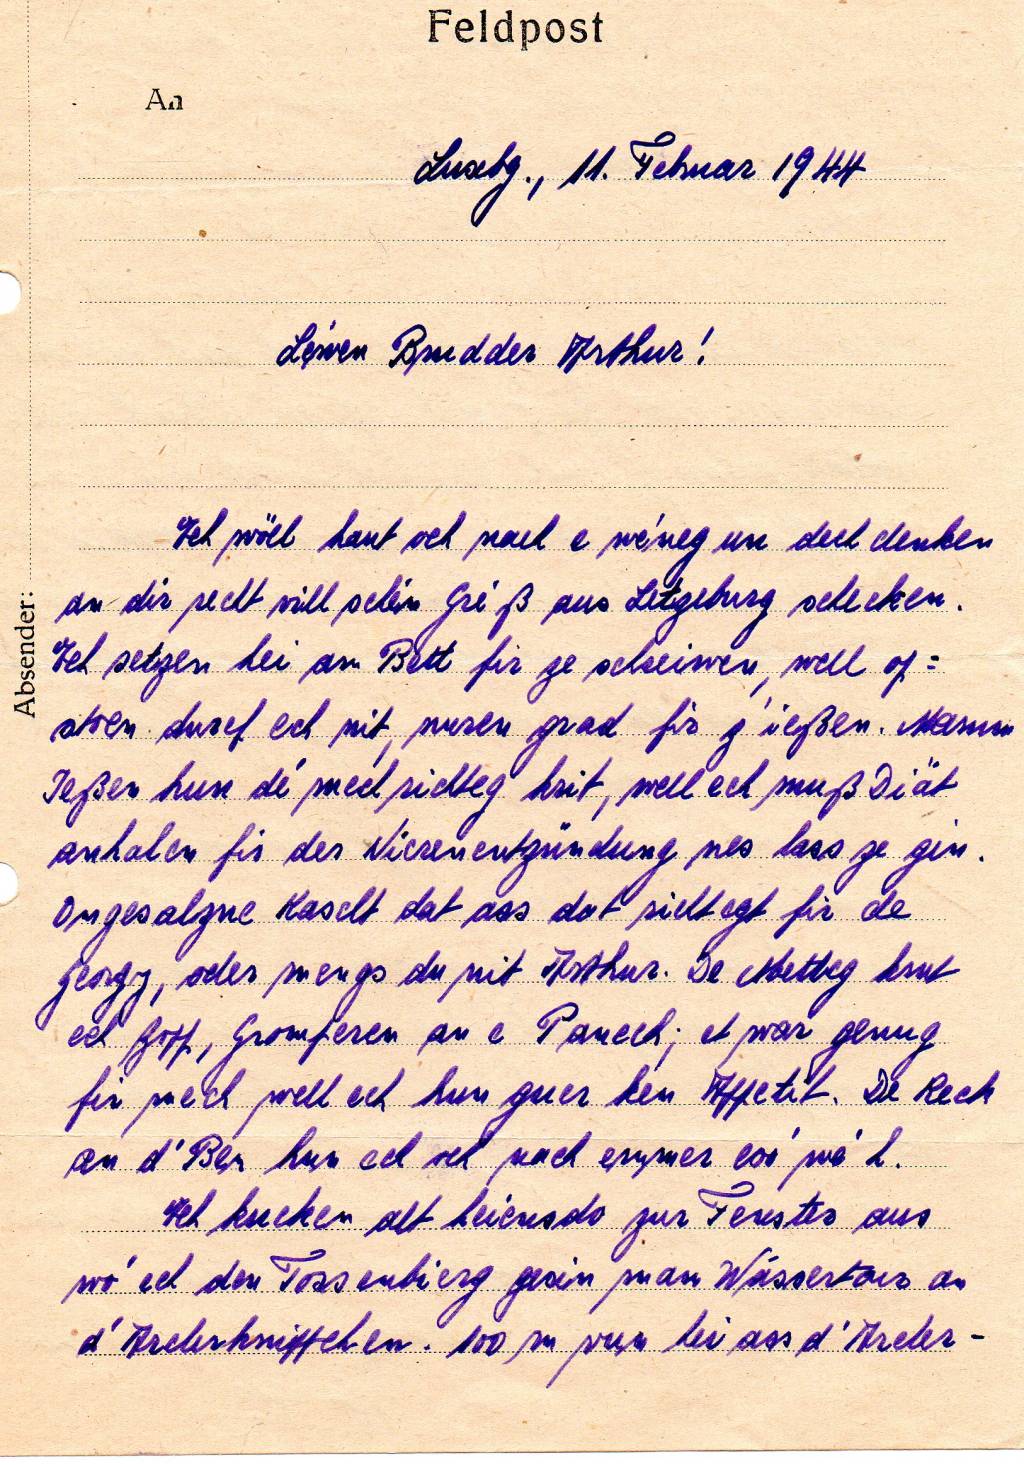 Feldpost
An
Luxbg., 11. Februar 1944
Absender:
Léiwen Brudder Arthur!
Ech wöll haut och nach e wéineg un dech denken
an dir recht vill schéin Gréiß aus Letzeburg schecken.
Ech setzen hei am Bett fir ze schreiwen, well op=
stoen duref ech nit, nuren grad fir z'ießen. Mam
Ießen hun dé mech richteg krit, well ech muß Diät
anhalen fir der Nierenentzündung nes lass ze gin.
Ongesalzne Kascht dat ass dat richtegt fir de
Georgy, oder mengs du nit Arthur. De Metteg krut
ech Zopp, Gromperen an e Panech; et war genug
fir mech well ech hun guer ken Appetit. De Reck
an d'Ben hun ech och nach emmer esó wéi.
Ech kucken alt heiansdo zur Fenster aus
wó ech den Tossenbierg gesin mam Wässertour an
d'Arelerknippchen. 100 m vun hei ass d'Areler-